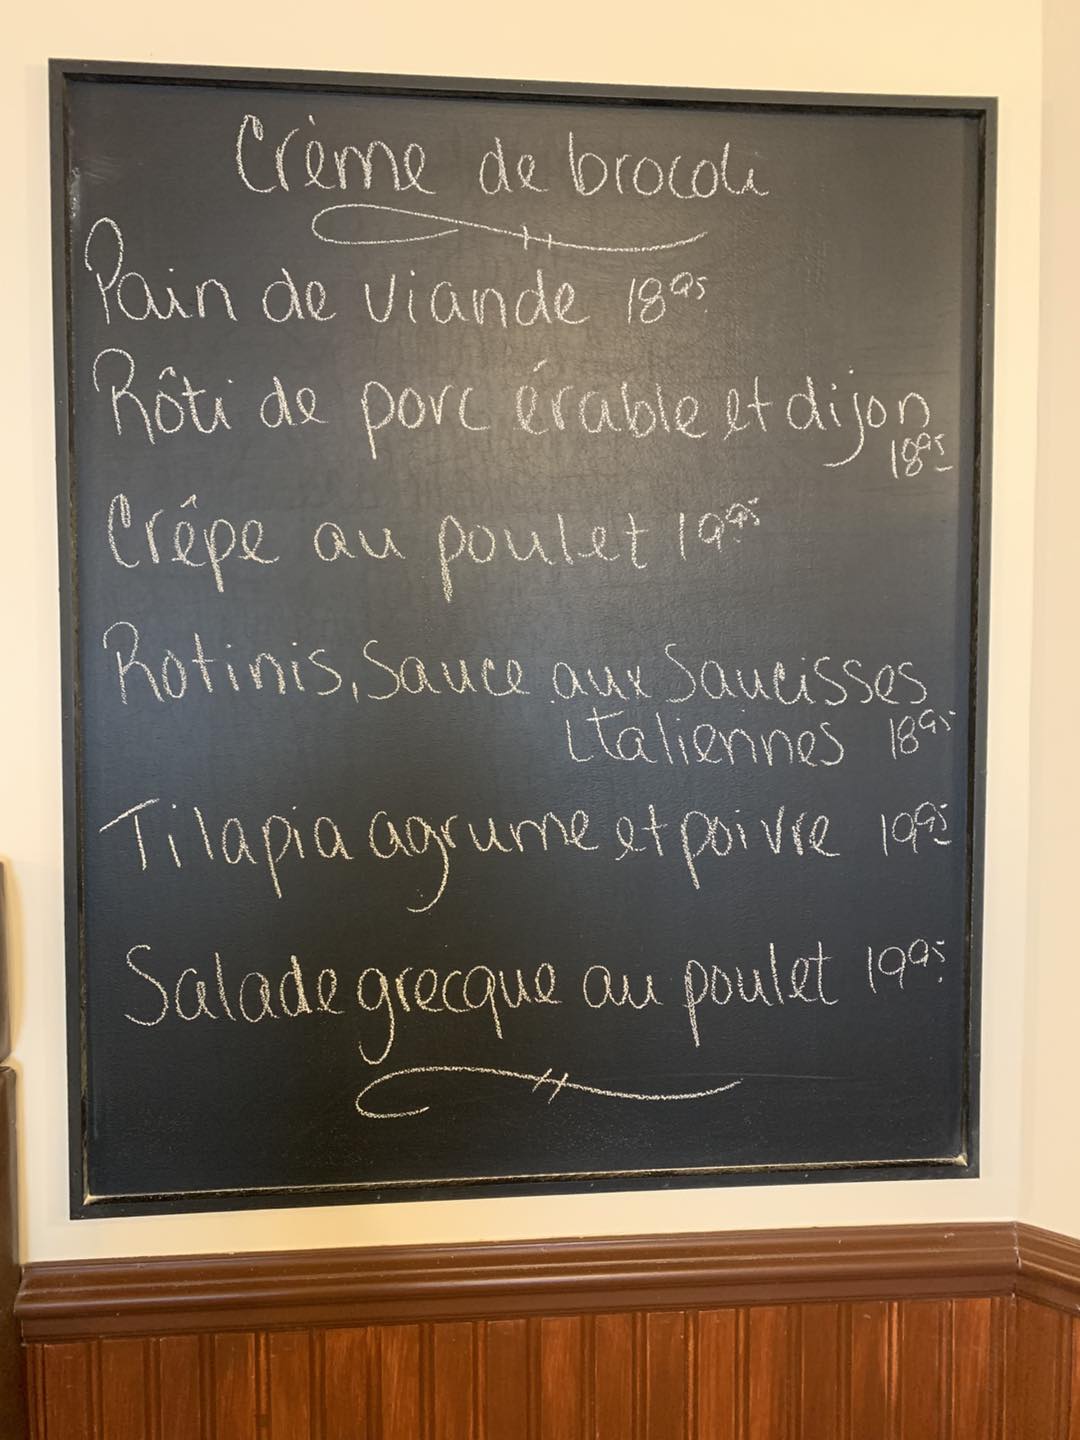 Crème de brocoli
Pain de viande 18⁹⁵
Rôti de porc érable et dijon
18⁹⁵
Crêpe au poulet 19⁹⁵
Rotinis, Sauce aux Saucisses
italiennes 18⁹⁵
Tilapia agrume et poivre 19⁹⁵
Salade grecque au poulet 19⁹⁵